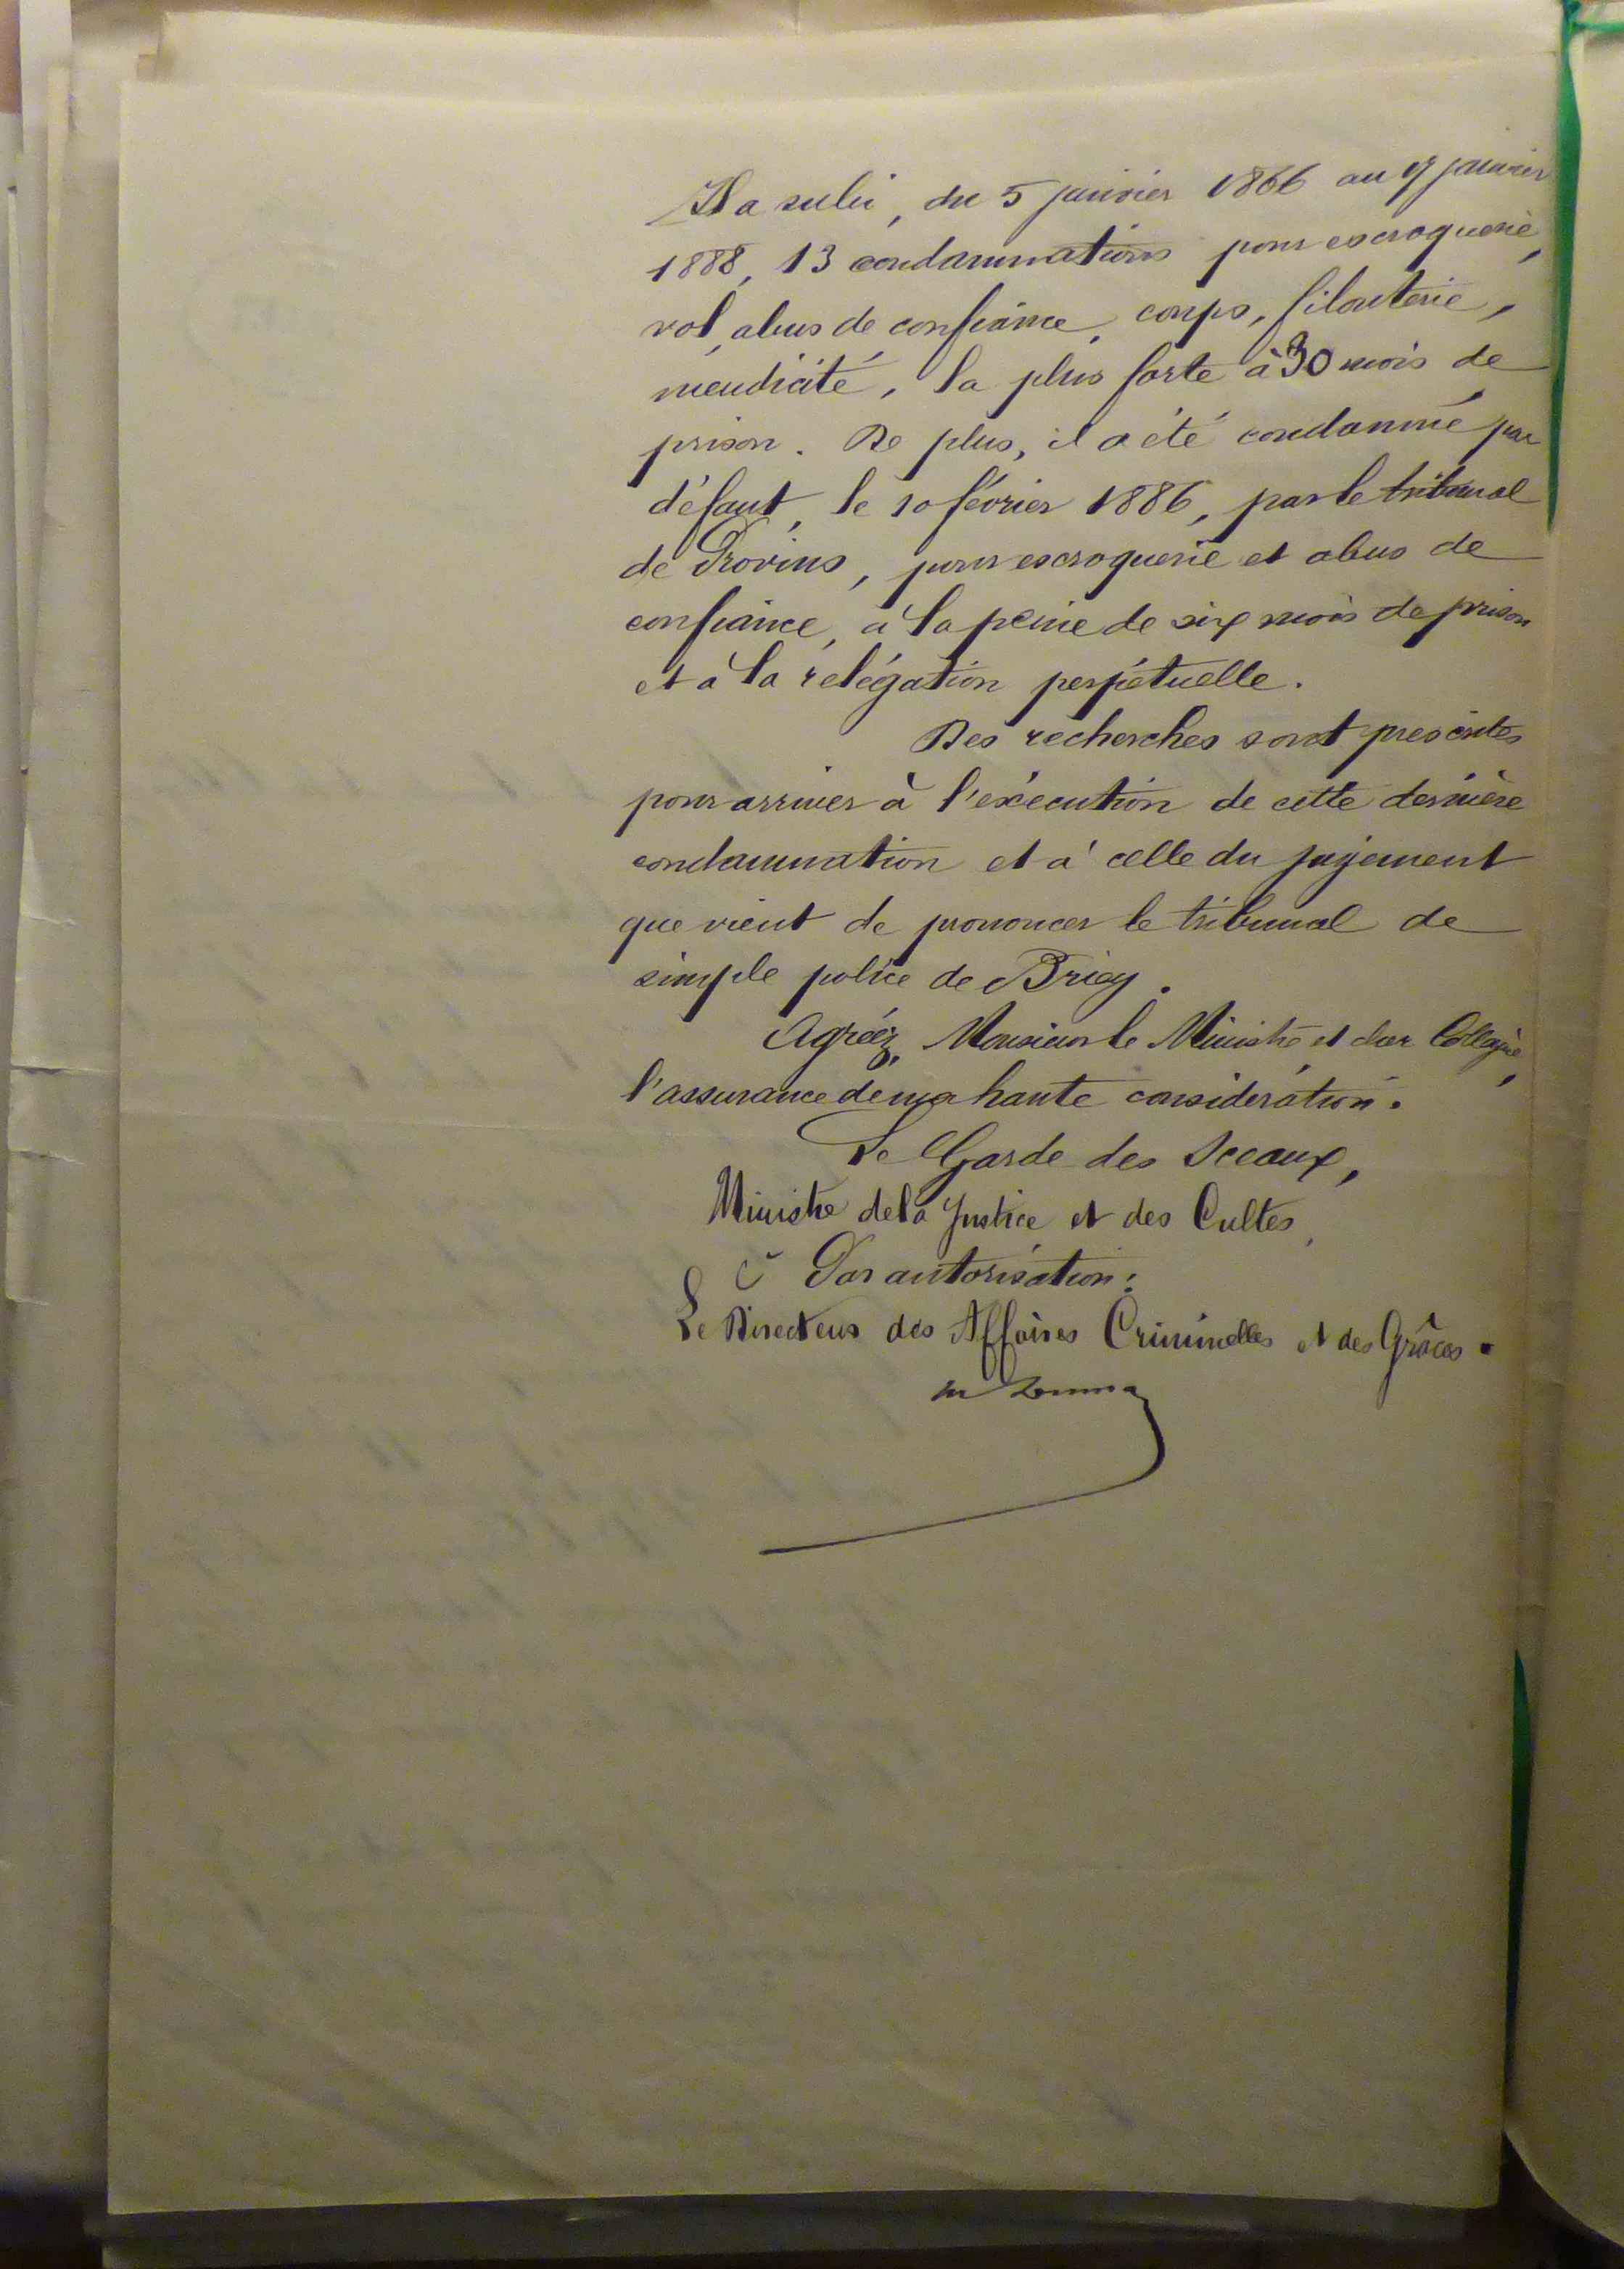 Il a subi, du 5 janvier 1866 au 9 janvier
1888, 13 condamnations pour escroquerie,
vol, abus de confiance, coups, filouterie,
mendicité, la plus forte à 30 mois de
prison. De plus, il a été condamné par
défaut, le 10 février 1886, par le tribunal
de Provins, pour escroquerie et abus de
confiance, à la peine de six mois de prison
et à la relégation perpétuelle.
Des recherches sont prescrites
pour arriver à l'exécution de cette dernière
condamnation et à celle du jugement
que vient de prononcer le tribunal de
simple police de Briey.
Agréez, Monsieur le Ministre et cher Collègue,
l'assurance de ma haute considération.
Le Garde des Sceaux,
Ministre de la Justice et des Cultes,
Par autorisation:
Le Directeur des Affaires Criminelles et des Grâces.